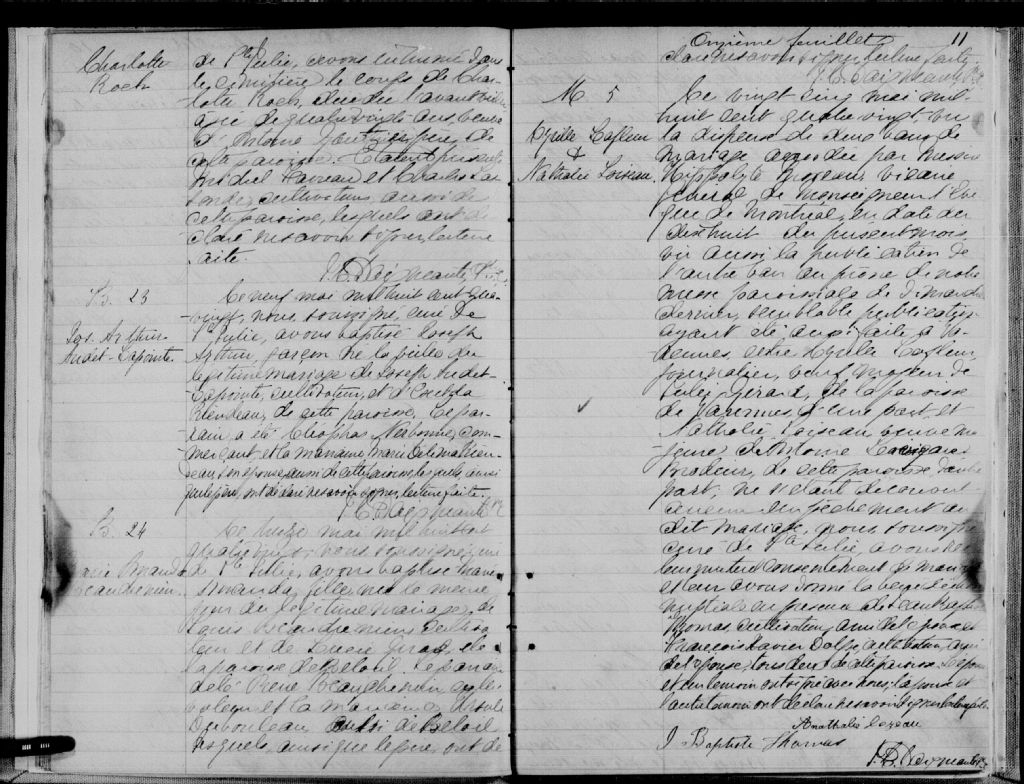 Charlotte
Roch
de Ste Julie, avons inhumé dans
le cimetière le corps de Char-
lotte Roch, décédée l'avant veille
agée de quatre vingts ans veuve
d'Antoine
cette paroisse. Etaient présents
Michel et Charles La-
cultivateurs aussi de
cette paroisse, lesquels ont dé-
claré ne savoir signer lecture
faite.
B. 23
Jos. Arthur
Audet-Lapointe.
Ce neuf mai mil huit cent quatre
vingt, nous soussigné, curé de
Ste Julie, avons baptisé Joseph
Arthur, garçon né la veille du
légitime mariage de Joseph Audet-
Lapointe, cultivateur, et d'
Riendeau, de cette paroisse, Le par-
rain a été Cléophas Narbonne, com-
merçant et la marraine, Marie
son épouse aussi de cette paroisse lesquels, ainsi
que le père, ont déclaré ne savoir signer, lecture faite.
B. 24
Marie Amanda
Beauchemin
Ce mai mil huit cent
quatre vingt nous soussigné, curé
de Ste Julie, avons baptisé Marie
Amanda, fille née le même
jour du légitime mariage de
Louis Beauchemin cultiva-
teur et de Lucie de
la paroisse de Beloeil. Le parrain
a été René Beauchemin
et la marraine Ursule
aussi de Beloeil
lesquels, ainsi que le père, ont dé-
Onzième feuillet
11
claré ne savoir signer lecture faite.
M 5
Cyrille Lafleur
&
Nathalie Loiseau.
Ce vingt cinq mai mil-
huit cent quatre vingt, vu
la dispense de deux bans de
mariage accordée par messire
Hippolyte Moreau, vicaire
général de Monseigneur l'Evê-
que de Montréal, en date du
dixhuit du présent mois
vu aussi la publication de
l'autre ban au prône de notre
messe paroissiale de Dimanche
dernier, semblable publication
ayant été aussi faite à Va-
rennes, entre Cyrille Lafleur,
journalier, veuf majeur de
Julie Girard, de la paroisse
de Varennes, d'une part et
Nathalie Loiseau veuve ma-
jeure de Antoine
Brodeur, de cette paroisse d'autre
part, ne s'étant découvert
aucun empêchement au
dit mariage, nous soussigné
curé de Ste Julie, avons reçu
leur mutuel consentement de mariage
et leur avons donné la bénédiction
nuptiale en présence de Jean Baptiste
Thomas, cultivateur, ami de l'époux et
François Xavier Dalpé cultivateur, ami
de l'épouse, tous deux de cette paroisse. L'épouse
et un témoin ont signé avec nous; l'époux et
l'autre témoin ont déclaré ne savoir signer lecture faite
Anathalie Lozeau
J Baptiste Thomas